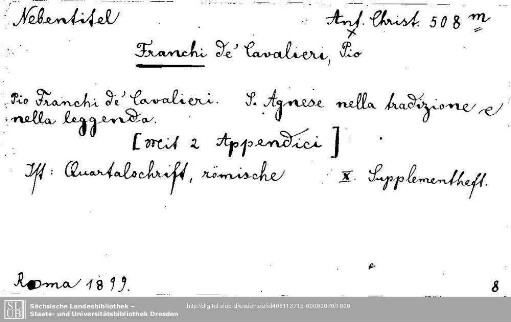 Nebentitel Ant. Christ. 508 m
Franchi de' Cavalieri, Pio
Pio Franchi de' Cavalieri. S. Agnese nella tradizione e
nella leggenda.
[Mit 2 Appendici]
Ist: Quartalschrift, römische X. Supplementheft.
Roma 1899. 8
Sächsische Landesbibliothek –
Staats- und Universitätsbibliothek Dresden